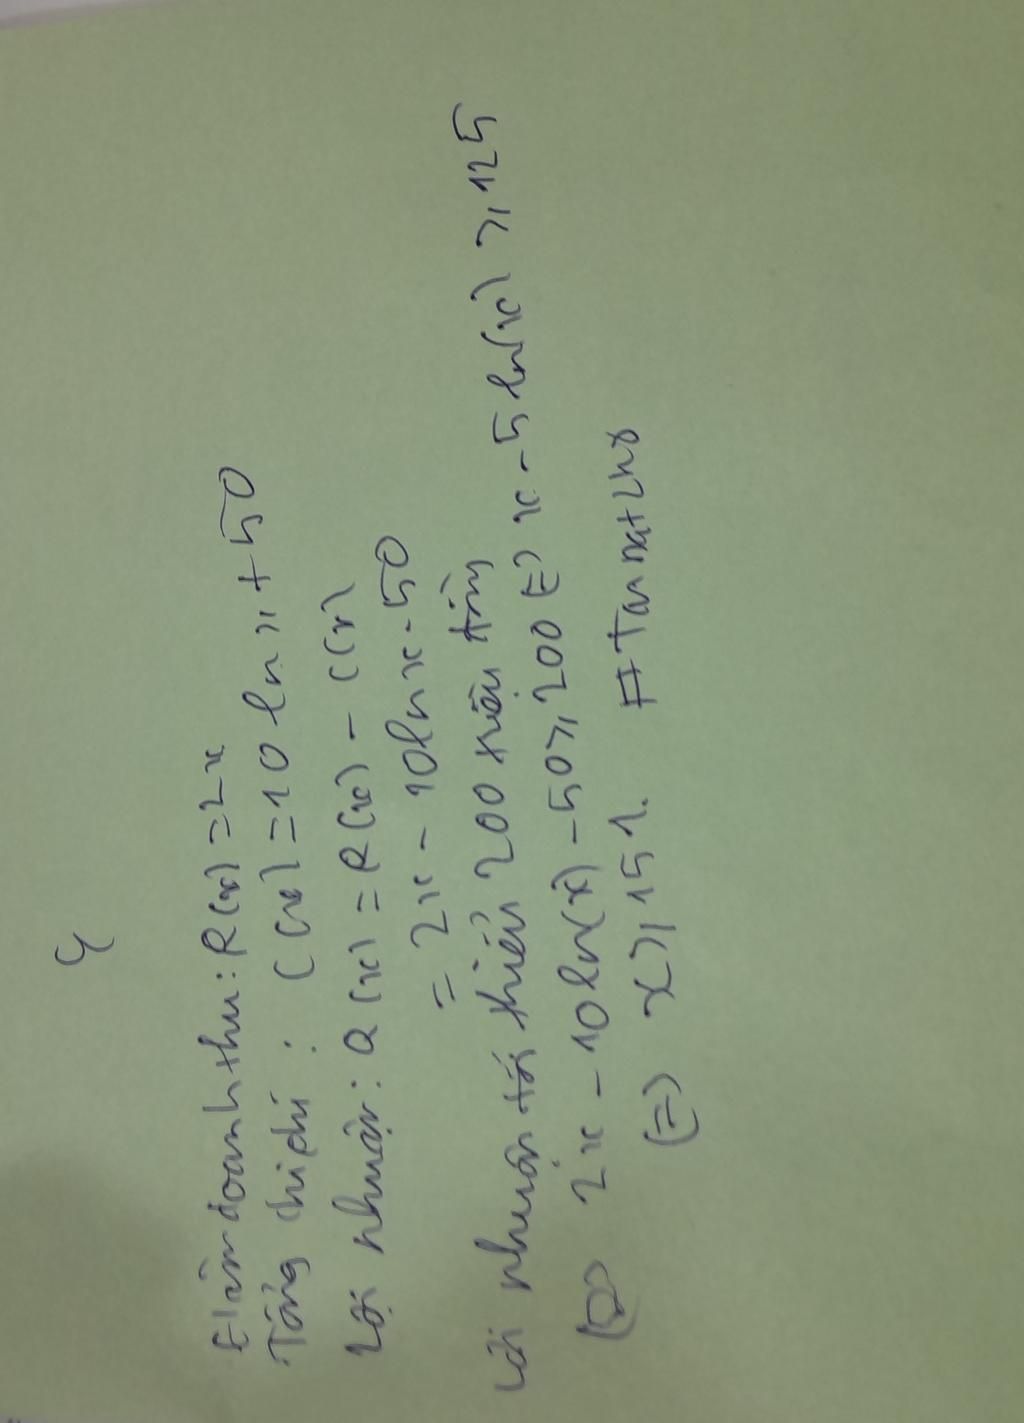 4
Hàm doanh thu: R(x) = 2x
Tổng chi phí : C(x) = 10 ln x + 50
Lợi nhuận: Q(x) = R(x) - C(x)
= 2x - 10 ln x - 50
Lợi nhuận tối thiểu 200 triệu đồng
2x - 10 ln(x) - 50 ≥ 200 (=) x - 5 ln(x) ≥ 125
(=) x ≥ 151.